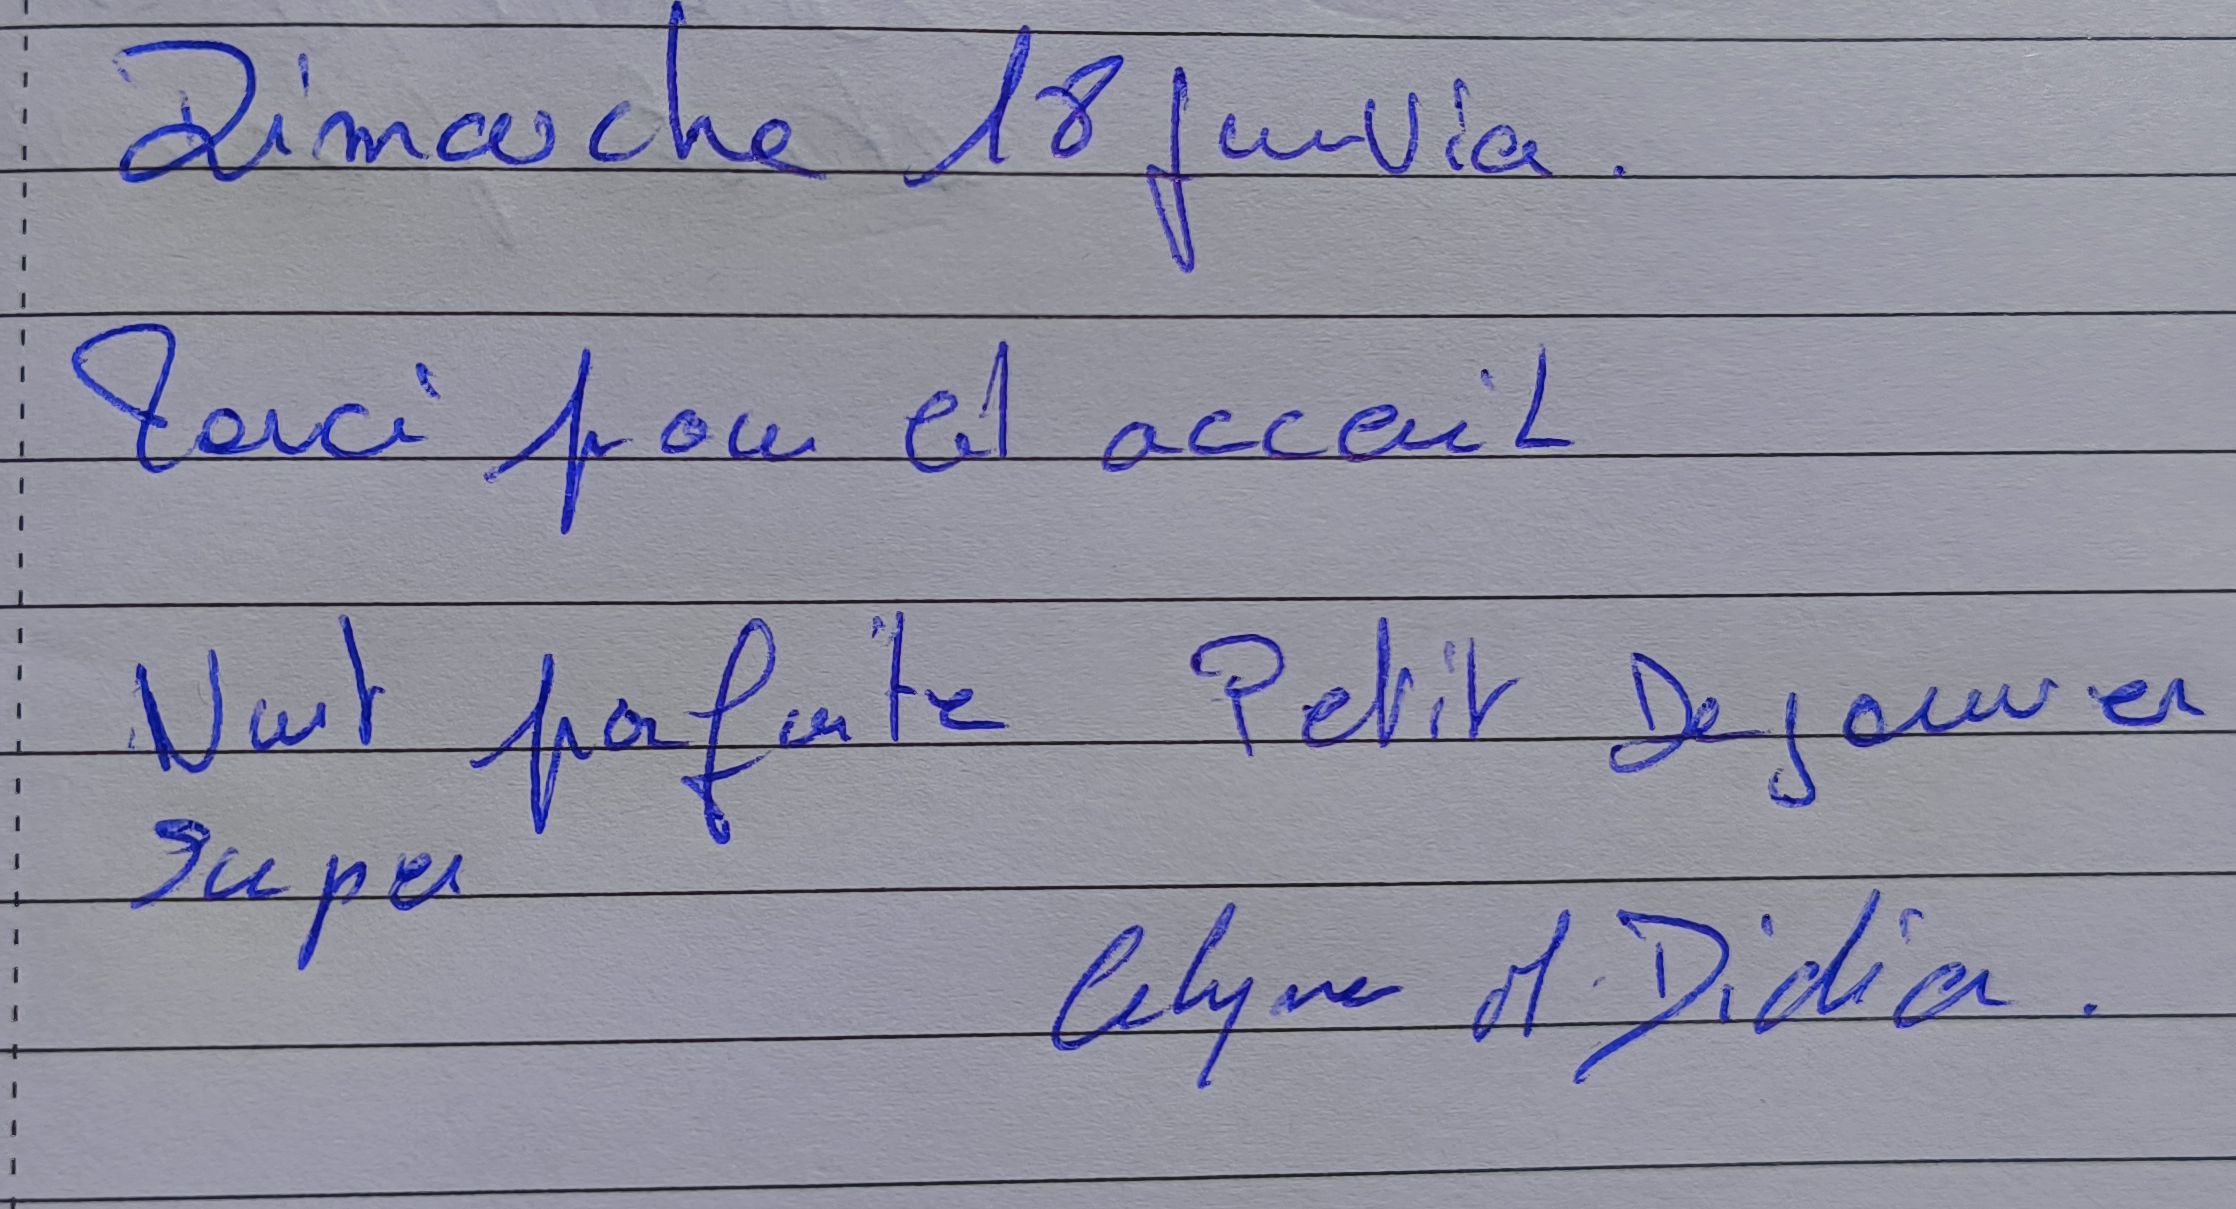 Dimanche 18 Janvier.
Merci pour cet acceuil
Nuit parfaite Petit Dejeuner
super
et Didier.